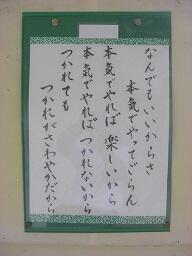 なんでもいいからさ
本気でやってごらん
本気でやれば 楽しいから
本気でやれば つかれないから
つかれても
つかれがさわやかだから